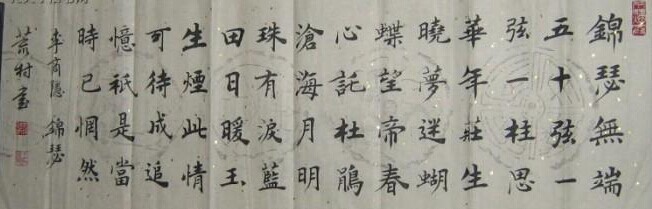 錦瑟無端
五十弦一
弦一柱思
華年莊生
曉夢迷蝴
蝶望帝春
心託杜鵑
滄海月明
珠有淚藍
田日暖玉
生煙此情
可待成追
憶祇是當
時已惘然
李商隱 錦瑟
村書